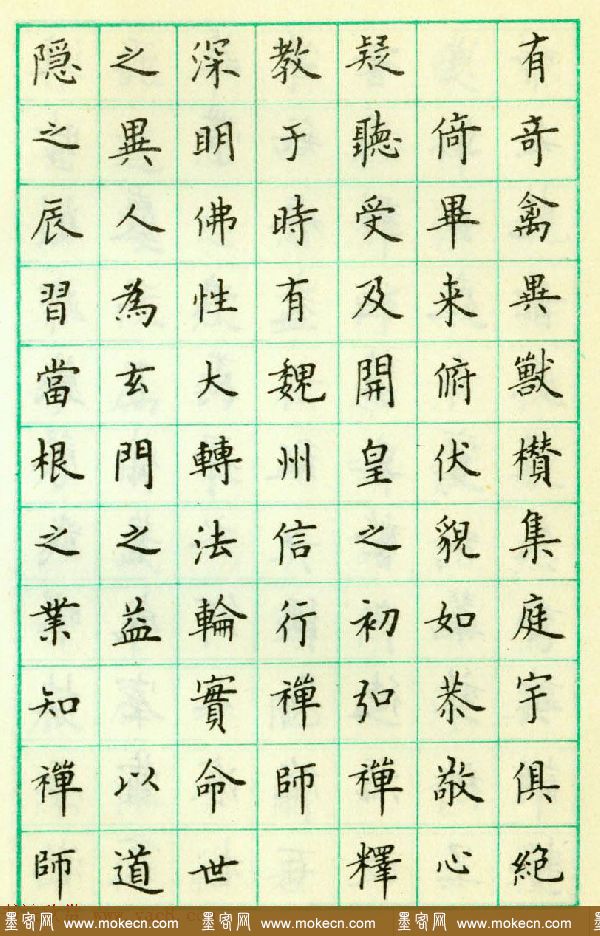 有奇禽異獸欑集庭宇俱絶
倚畢来俯伏貌如恭敬心
疑聽受及開皇之初弘禪釋
教于時有魏州信行禪師
深明佛性大轉法輪實命世
之異人為玄門之益以道
隠之辰習當根之業知禪師
墨客网 www.mokecn.com 墨客网 www.mokecn.com 墨客网 www.mokecn.com